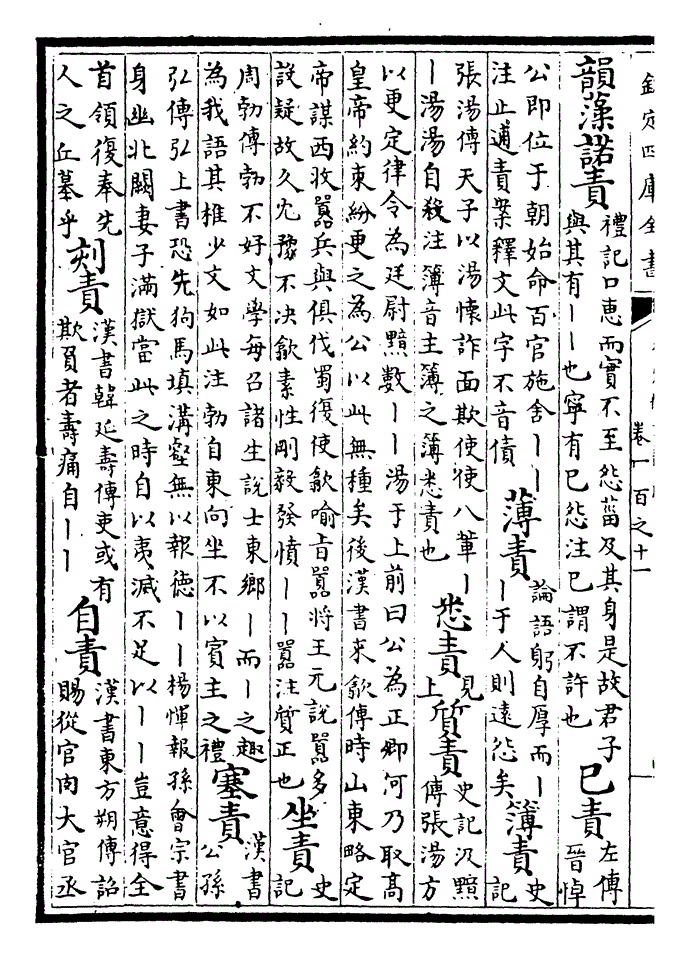 欽定四庫全書
卷一百之十一
韻藻諾責禮記口惠而實不至怨菑及其身是故君子
與其有丨丨也寧有已怨注已謂不許也
已責左傳
晉悼
公即位于朝始命百官施舍丨丨
注止逋責案釋文此字不音債
薄責論語躬自厚而丨
丨于人則遠怨矣
簿責史
記
張湯傳天子以湯懷詐面欺使使八輩丨
丨湯湯自殺注簿音主簿之簿悉責也
悉責見
上
質責史記汲黯
傳張湯方
以更定律令為廷尉黯數丨丨湯于上前曰公為正卿何乃取高
皇帝約束紛更之為公以此無種矣後漢書來歙傳時山東略定
帝謀西收囂兵與俱伐蜀復使歙喻旨囂將王元說囂多
設疑故久尤豫不決歙素性剛毅發憤丨丨囂注質正也
坐責史
記
周勃傳勃不好文學每召諸生說士東鄉丨而丨之趣
為我語其椎少文如此注勃自東向坐不以賓主之禮
塞責漢書
公孫
弘傳弘上書恐先狗馬填溝壑無以報德丨丨楊惲報孫會宗書
身幽北闕妻子滿獄當此之時自以夷滅不足以丨丨豈意得全
首領復奉先
人之丘墓乎
刻責漢書韓延壽傳吏或有
欺負者壽痛自丨丨
自責漢書東方朔傳詔
賜從官肉大官丞